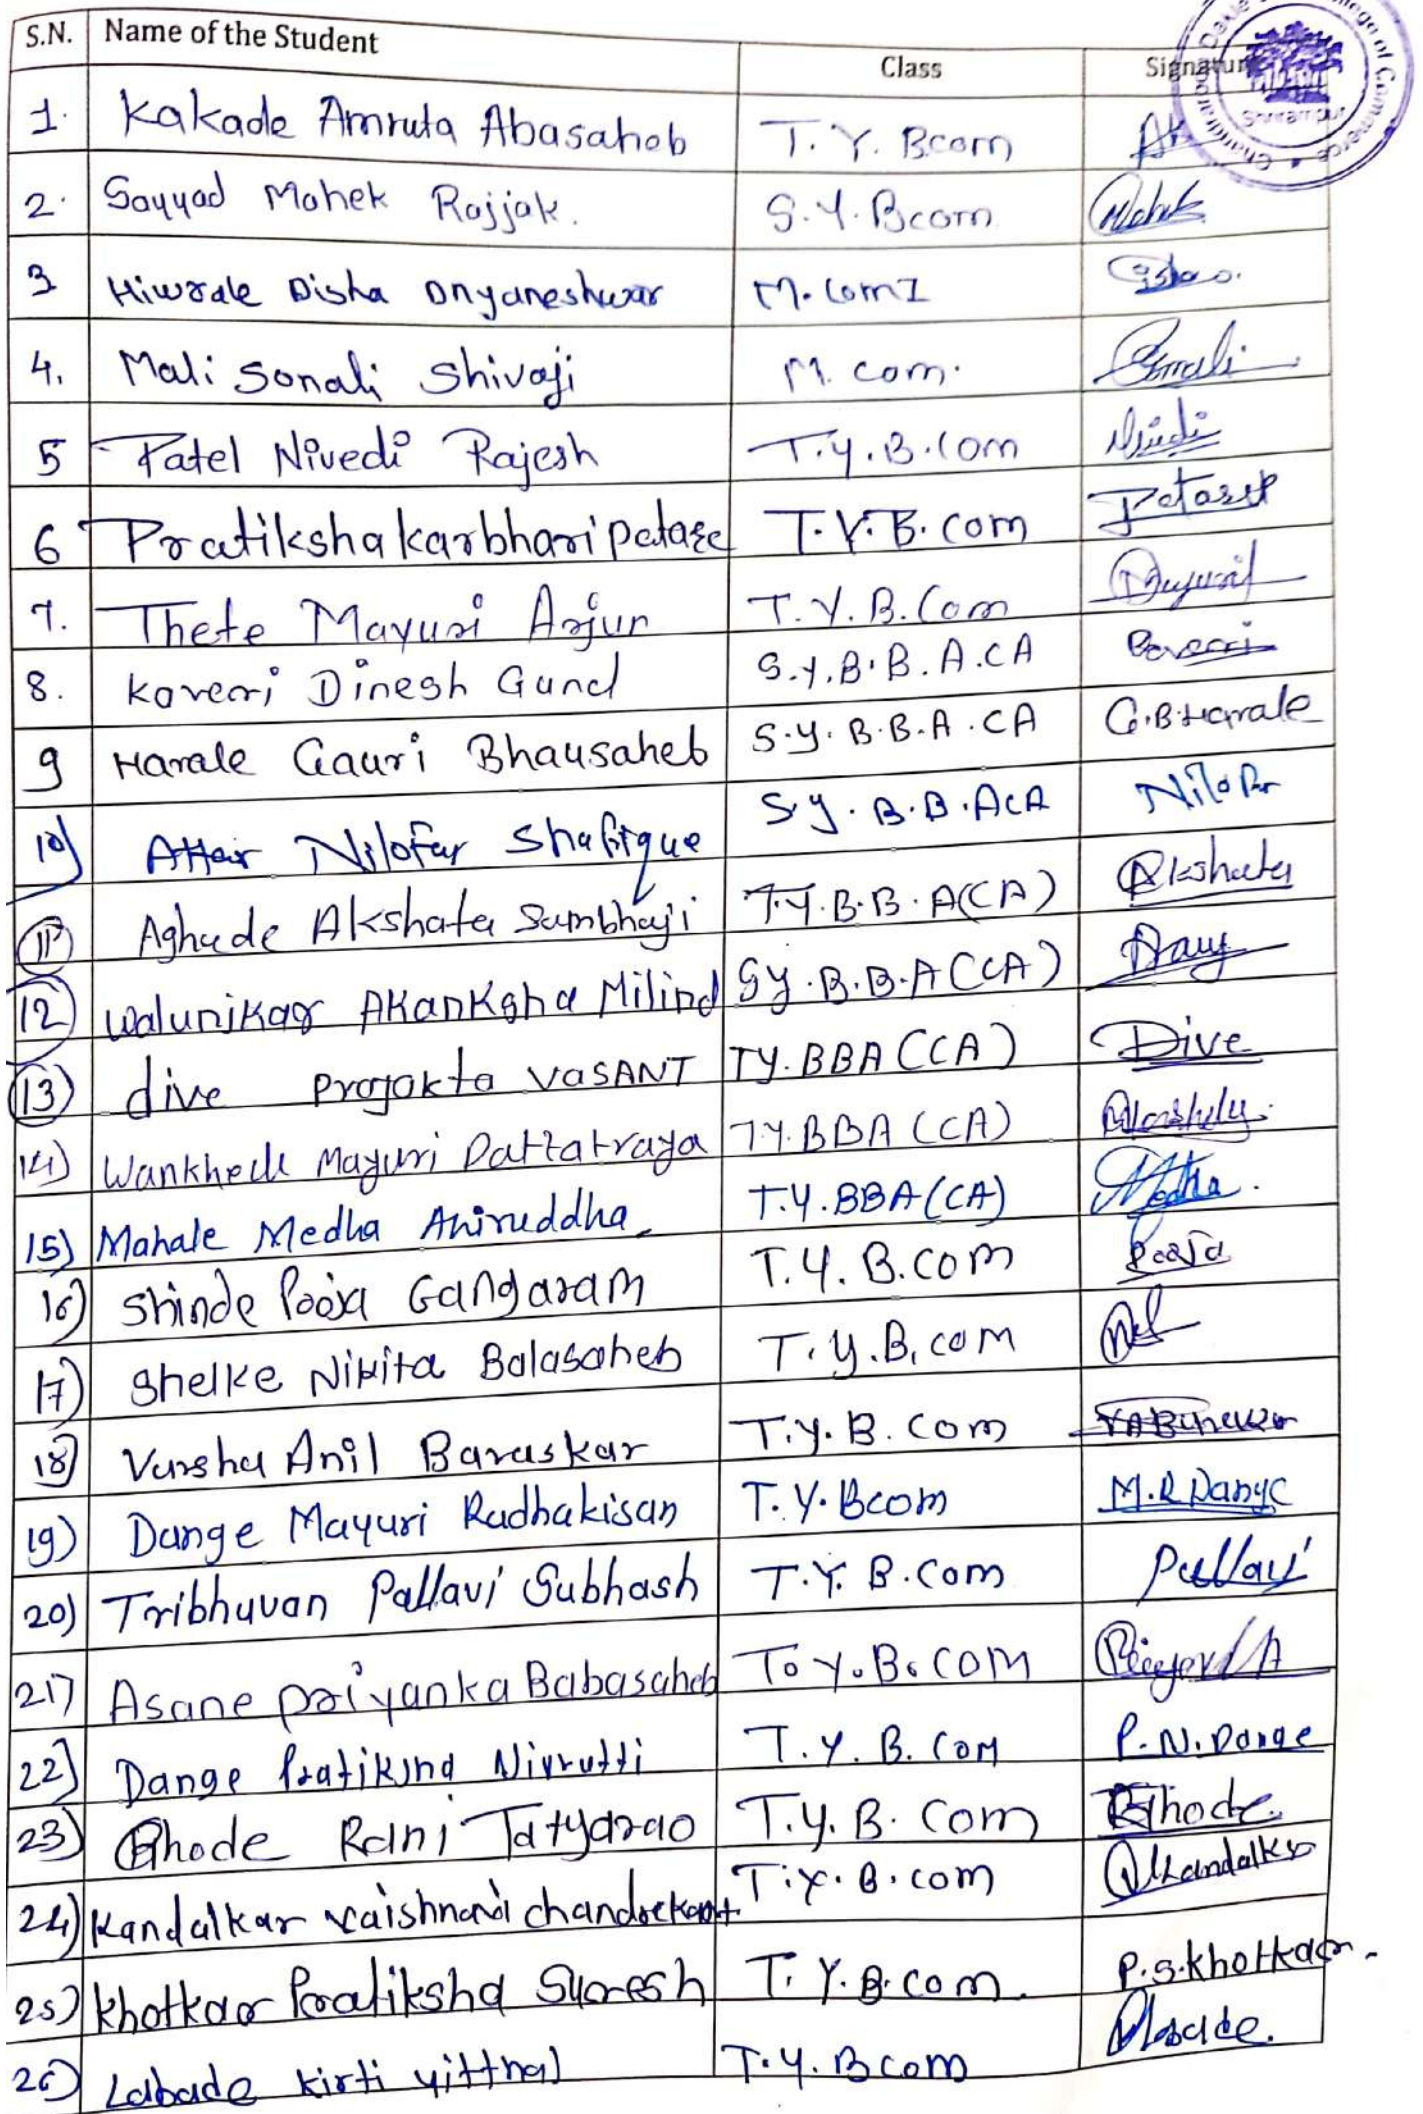 S.N. Name of the Student Class Signature
College of Commerce
Shrirampur
1. Kakade Amruta Abasaheb T.Y. Bcom AK
2. Sayyad Mahek Rajjak. S.Y. Bcom Mahek
3 Hiwrale Disha Dnyaneshwar M.Com I
4. Mali Sonali Shivaji M. com. Smali
5 Patel Nivedi Rajesh T.Y.B.Com Nivedi
6 Pratiksha karbhari patare T.Y.B.com
7. Thete Mayuri Arjun T.Y.B.Com Mayuri
8. Kaveri Dinesh Gund S.Y.B.B.A.CA Kaveri
9 Harale Gauri Bhausaheb S.Y.B.B.A.CA G.B.Harale
10) Attar Nilofar Shafique S.Y.B.B.A CA Nilofar
11) Aghade Akshata Sambhaji T.Y.B.B.A(CA) Akshata
12 Walunjkar Akanksha Milind SY.B.B.A(CA)
13) dive Prajakta VASANT TY.BBA(CA) Dive
14) Wankhede Mayuri Dattatraya T.Y.BBA(CA)
15) Mahale Medha Aniruddha T.Y.BBA(CA) Medha.
16) Shinde Pooja Gangaram T.Y.B.COM Pooja
17) Shelke Nikita Balasaheb T.Y.B.com
18) Varsha Anil Baraskar T.Y.B.Com
19) Dange Mayuri Radhakisan T.Y.Bcom M.R Dange
20) Tribhuvan Pallavi Subhash T.Y.B.Com Pallavi
21) Asane Priyanka Babasaheb T.Y.B.COM
22) Dange Pratiksha Nivrutti T.Y.B.COM P.N.Dange
23) Bhode Rani Tatyarao T.Y.B.Com Bhode.
24) Kandalkar Vaishnavi chandrekant. T.Y.B.com Kandalkr
25) Khotkar Pratiksha Suresh T.Y.B.com. P.S.Khotkar.
26) Labade Kirti vitthal T.Y.Bcom Labade.